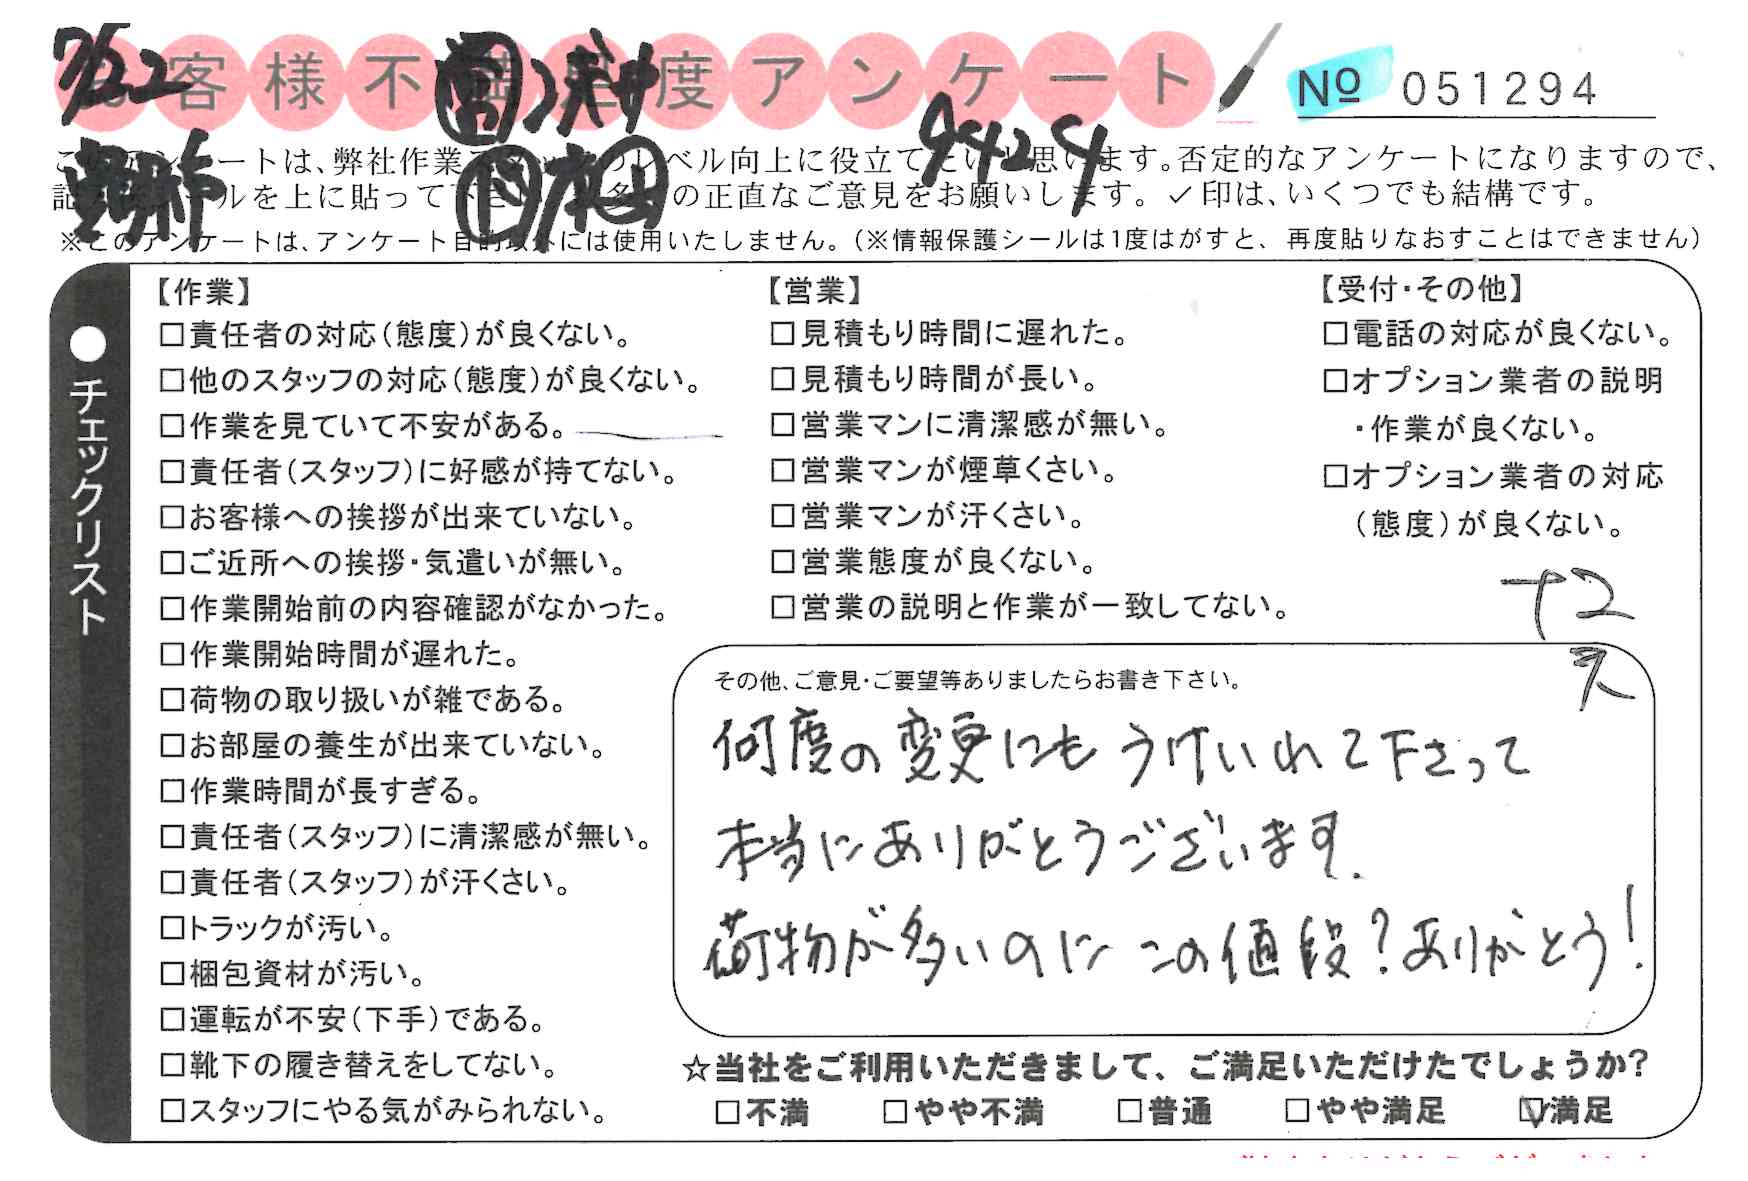 7/22
お客様不満足度アンケート
Nº 051294
このアンケートは、弊社作業スタッフのレベル向上に役立てたいと思います。否定的なアンケートになりますので、
シールを上に貼って下さい。の正直なご意見をお願いします。✓印は、いくつでも結構です。
※このアンケートは、アンケート目的以外には使用いたしません。(※情報保護シールは1度はがすと、再度貼りなおすことはできません)
●チェックリスト
【作業】
□責任者の対応(態度)が良くない。
□他のスタッフの対応(態度)が良くない。
□作業を見ていて不安がある。
□責任者(スタッフ)に好感が持てない。
□お客様への挨拶が出来ていない。
□ご近所への挨拶・気遣いが無い。
□作業開始前の内容確認がなかった。
□作業開始時間が遅れた。
□荷物の取り扱いが雑である。
□お部屋の養生が出来ていない。
□作業時間が長すぎる。
□責任者(スタッフ)に清潔感が無い。
□責任者(スタッフ)が汗くさい。
□トラックが汚い。
□梱包資材が汚い。
□運転が不安(下手)である。
□靴下の履き替えをしてない。
□スタッフにやる気がみられない。
【営業】
□見積もり時間に遅れた。
□見積もり時間が長い。
□営業マンに清潔感が無い。
□営業マンが煙草くさい。
□営業マンが汗くさい。
□営業態度が良くない。
□営業の説明と作業が一致してない。
【受付・その他】
□電話の対応が良くない。
□オプション業者の説明
・作業が良くない。
□オプション業者の対応
(態度)が良くない。
+2
その他、ご意見・ご要望等ありましたらお書き下さい。
何度の変更にもうけいれて下さって
本当にありがとうございます.
荷物が多いのにこの値段?ありがとう!
☆当社をご利用いただきまして、ご満足いただけたでしょうか?
□不満 □やや不満 □普通 □やや満足 ☑満足